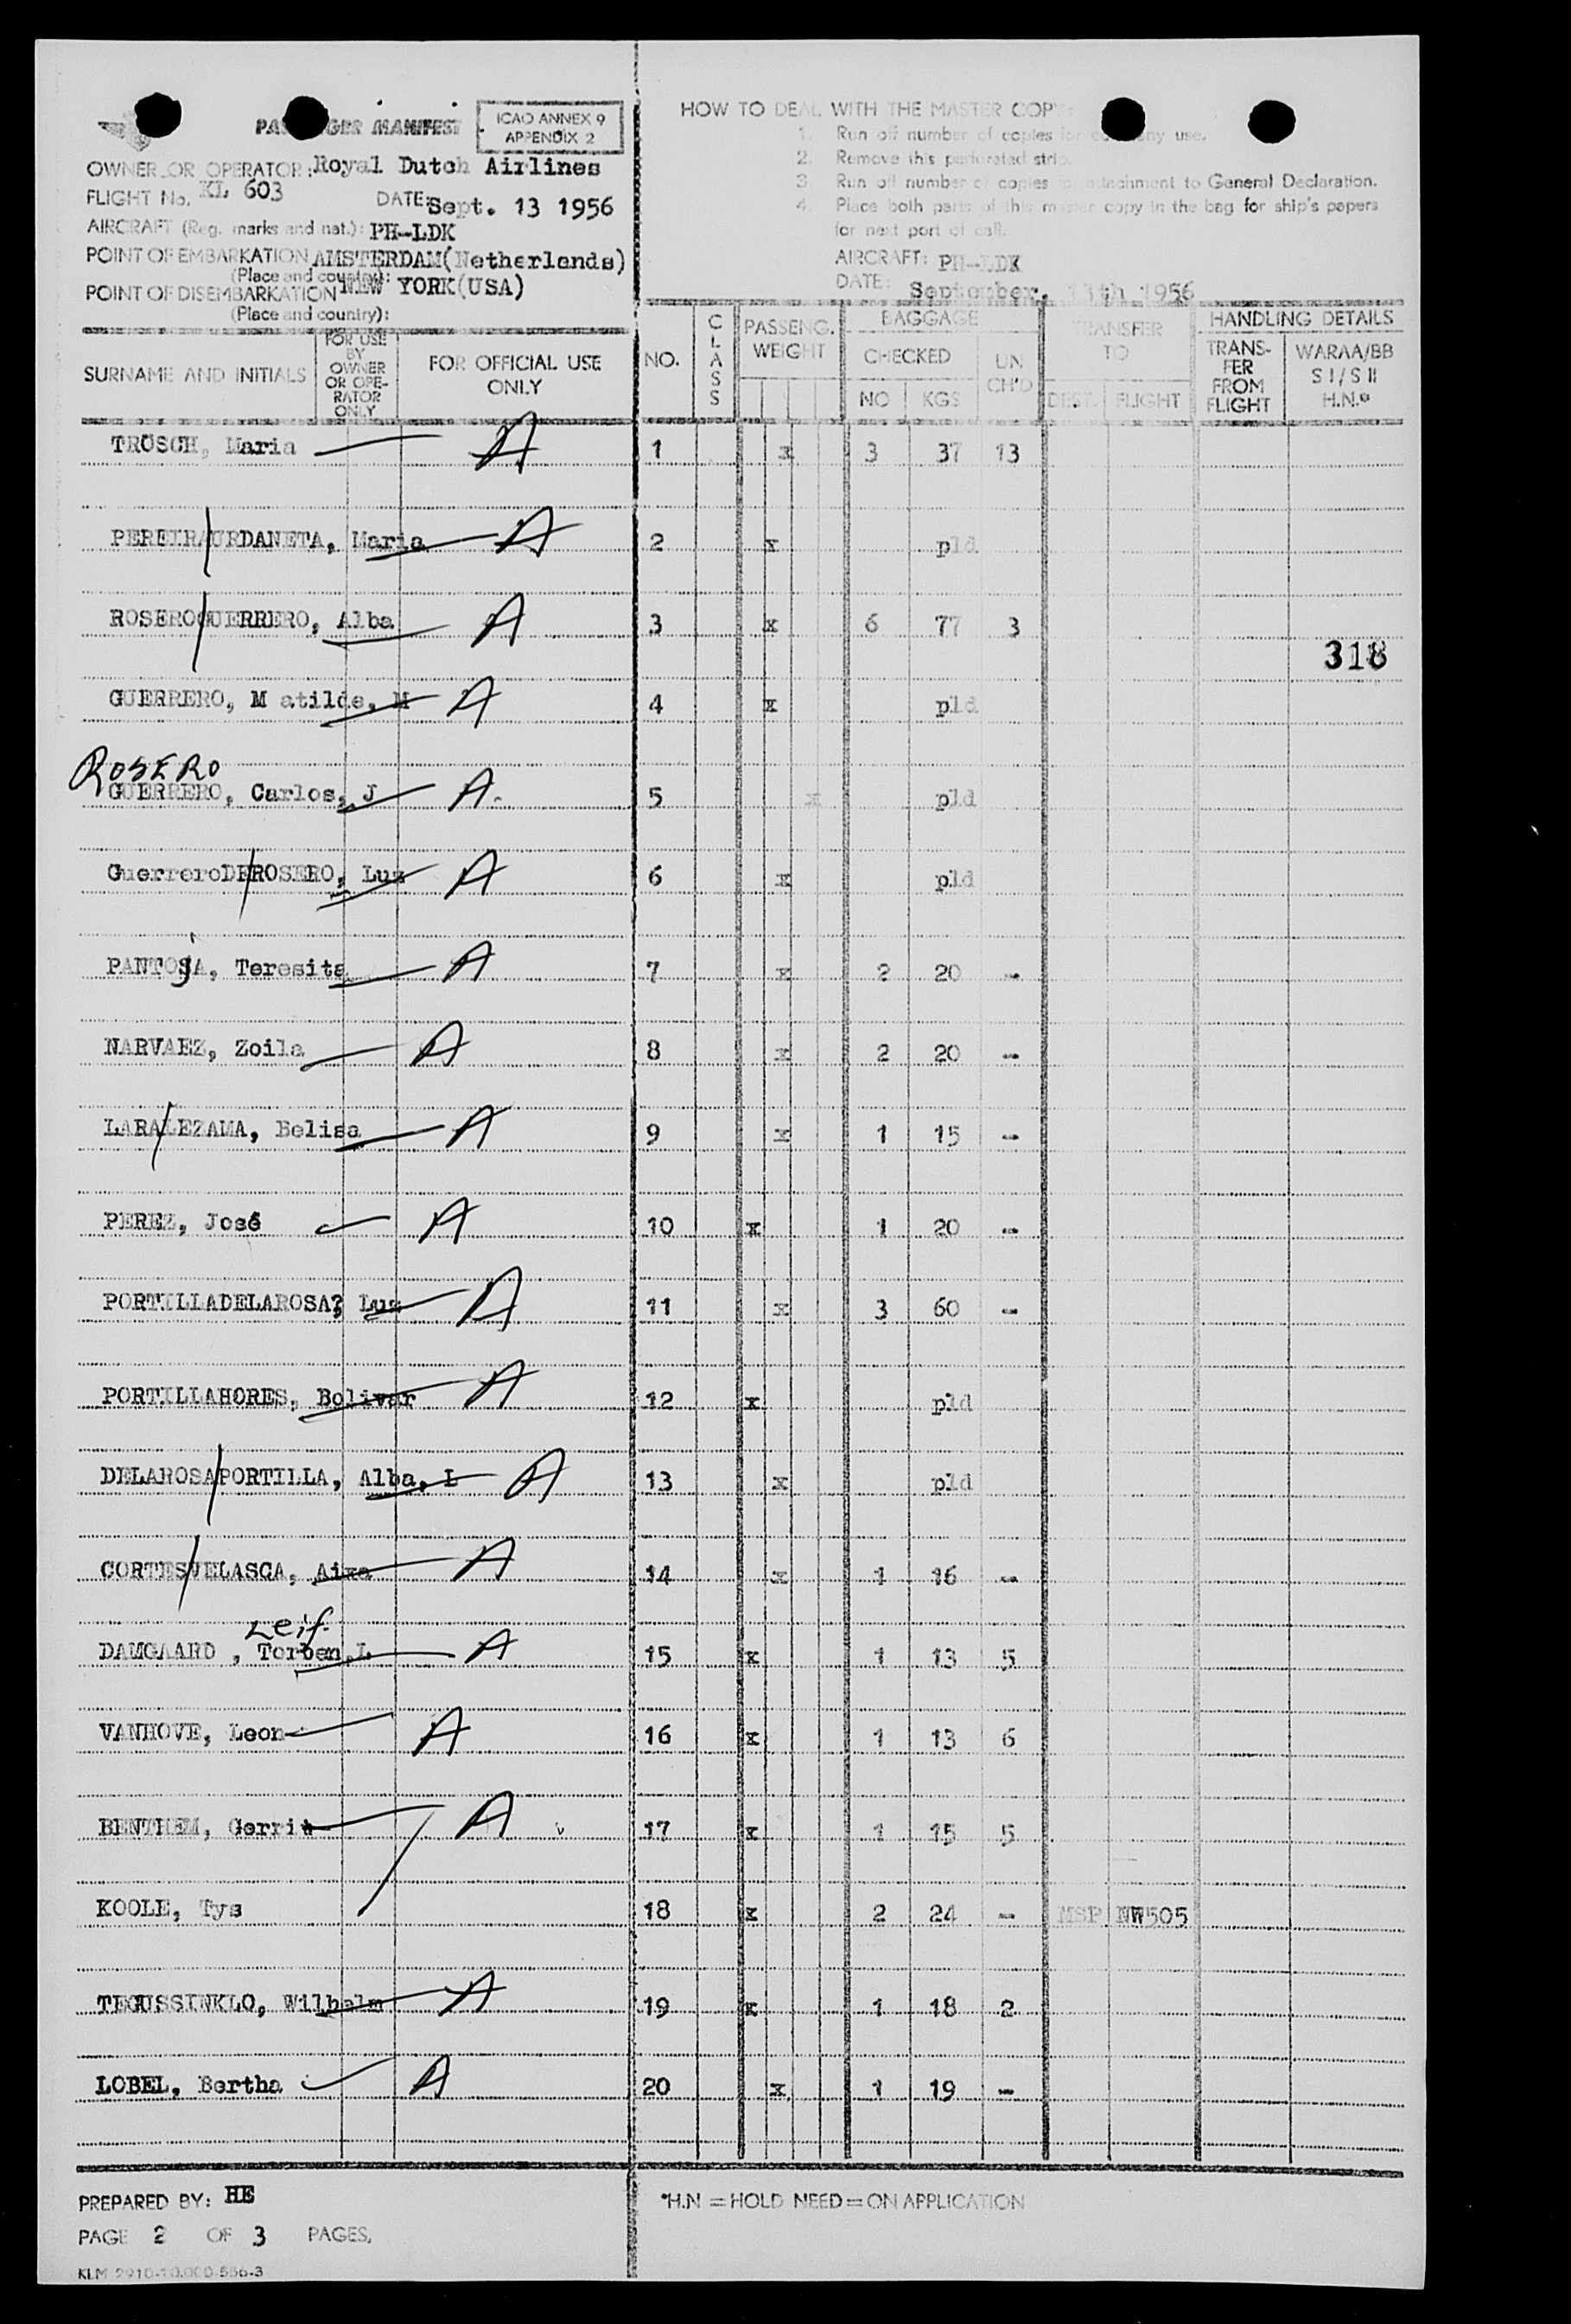 PASSENGER MANIFEST
ICAO ANNEX 9
APPENDIX 2
OWNER OR OPERATOR: Royal Dutch Airlines
FLIGHT No. KL 603 DATE: Sept. 13 1956
AIRCRAFT (Reg. marks and nat.): PH-LDK
POINT OF EMBARKATION AMSTERDAM(Netherlands)
(Place and country):
POINT OF DISEMBARKATION NEW YORK(USA)
(Place and country):
HOW TO DEAL WITH THE MASTER COPY:
1. Run off number of copies for company use.
2. Remove this perforated strip.
3. Run off number of copies for attachment to General Declaration.
4. Place both parts of this master copy in the bag for ship's papers
for next port of call.
AIRCRAFT: PH-LDK
DATE: September, 13th 1956
SURNAME AND INITIALS
FOR USE BY OWNER OR OPE-RATOR ONLY
FOR OFFICIAL USE ONLY
NO. CLASS PASSENG. WEIGHT BAGGAGE CHECKED NO KGS UN CH'D TRANSFER TO DEST. FLIGHT HANDLING DETAILS TRANS-FER FROM FLIGHT WARAA/BB S I / S II H.N.*
TROSCH, Maria A 1 x 3 37 13
PEREIRA/URDANETA, Maria A 2 x pld
ROSERO/GUERRERO, Alba A 3 x 6 77 3
318
GUERRERO, M atilde, M A 4 x pld
ROSERO
GUERRERO, Carlos, J A. 5 x pld
GuerreroDE/ROSERO, Luz A 6 x pld
PANTOJA, Teresita A 7 x 2 20 -
NARVAEZ, Zoila A 8 x 2 20 -
LARA/LEZAMA, Belisa A 9 x 1 15 -
PEREZ, José A 10 x 1 20 -
PORTILLADELAROSA?, Luz A 11 x 3 60 -
PORTILLAHORES, Bolivar A 12 x pld
DELAROSA/PORTILLA, Alba, L A 13 x pld
CORTES/VELASCA, Aixa A 14 x 1 16 -
Leif.
DAMGAARD , Torben,L A 15 x 1 13 5
VANHOVE, Leon A 16 x 1 13 6
BENTHEM, Gerrit A v 17 x 1 15 5
KOOLE, Tys 18 x 2 24 - MSP NW505
Wilhelm A 19 x 1 18 2
LOBEL, Bertha A 20 x 1 19 -
PREPARED BY: HE
PAGE 2 OF 3 PAGES.
*H.N = HOLD NEED = ON APPLICATION
KLM 2910-10.000-556-3